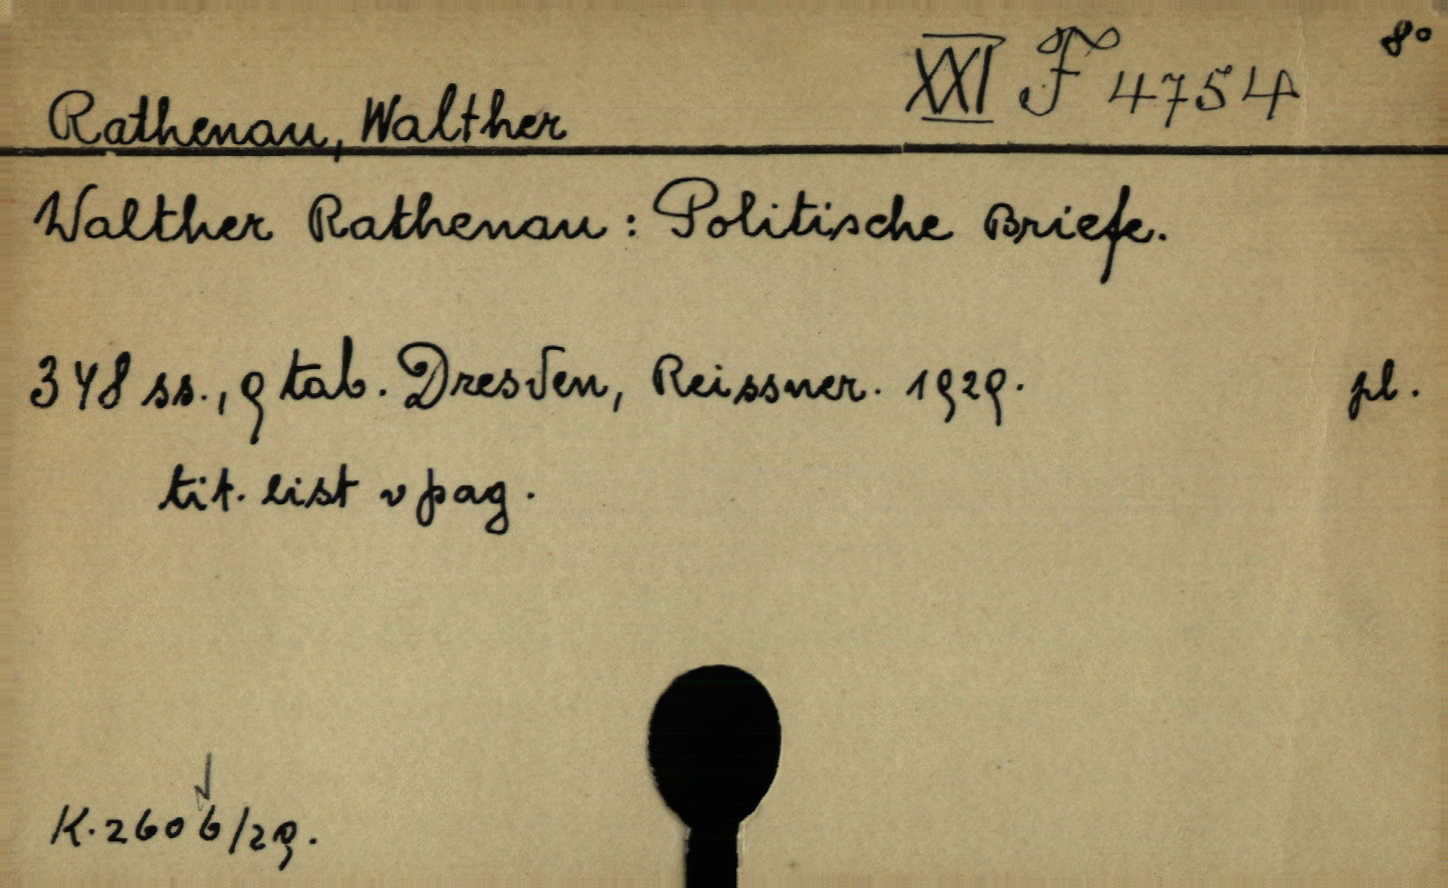 8°
XXI F 4754
Rathenau, Walther
Walther Rathenau: Politische Briefe.
348 ss., 9 tab. Dresden, Reissner. 1929. pl.
tit. list v pag.
K. 2606/29.